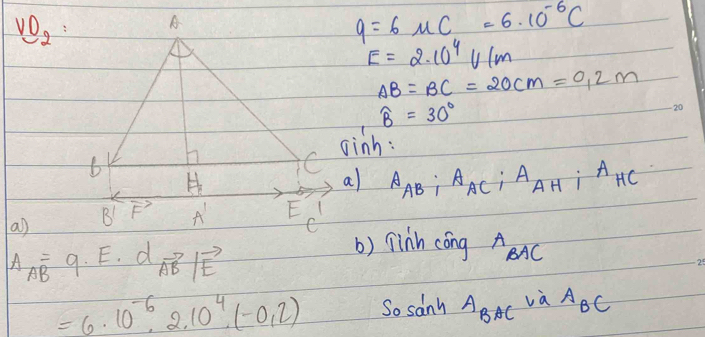 VD₂ :
q = 6 μC = 6.10⁻⁶C
E = 2.10⁴ V/m
AB = BC = 20cm = 0,2m
B̂ = 30°
Tính:
a) A_AB ; A_AC ; A_AH ; A_HC
b) Tính công A_BAC
So sánh A_BAC và A_BC
A
B H C
B' F⃗ A' E C'
a)
A_AB = q. E. d_A⃗B⃗/E⃗
= 6.10⁻⁶. 2.10⁴. (-0,2)
20
25